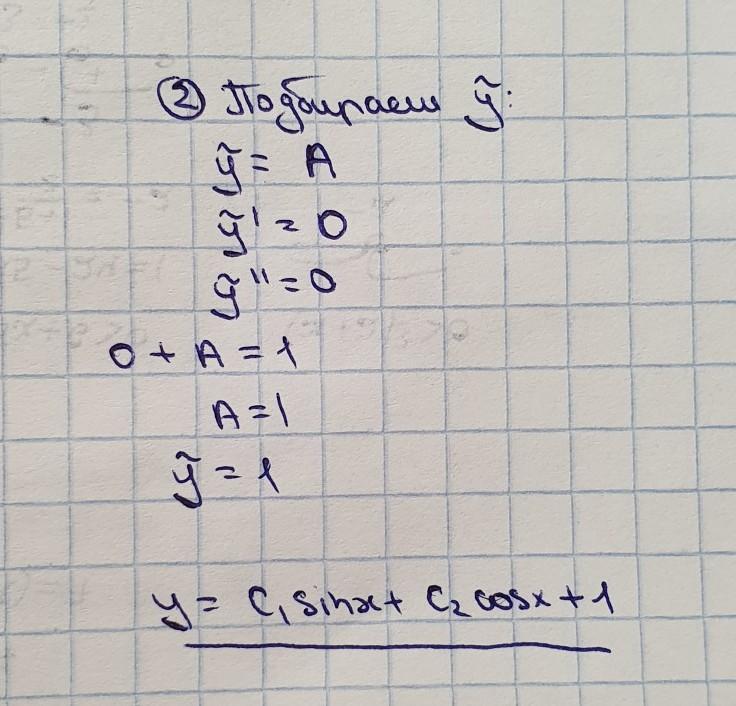 ② Подбираем ỹ:
ỹ = A
ỹ' = 0
ỹ'' = 0
0 + A = 1
A = 1
ỹ = 1
y = C₁ sinx + C₂ cosx + 1